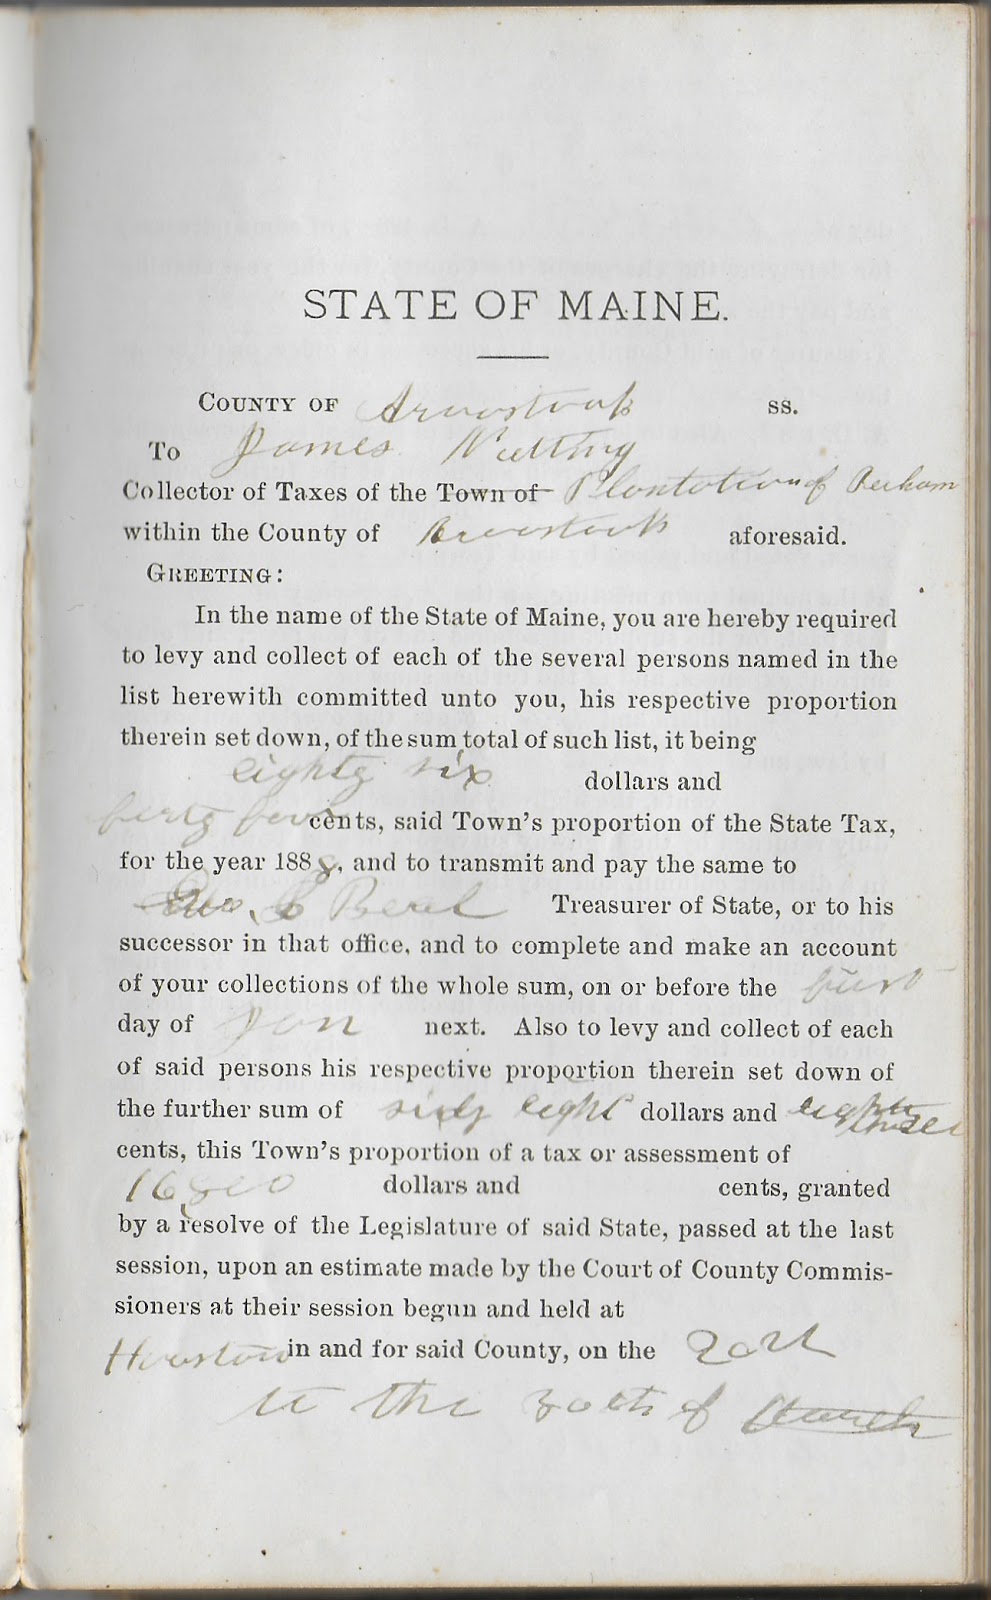 STATE OF MAINE.
COUNTY OF Aroostook ss.
To James Nutting
Collector of Taxes of the Town of Plantation of Perham
within the County of Aroostook aforesaid.
GREETING:
In the name of the State of Maine, you are hereby required
to levy and collect of each of the several persons named in the
list herewith committed unto you, his respective proportion
therein set down, of the sum total of such list, it being
eighty six dollars and
forty four cents, said Town's proportion of the State Tax,
for the year 1888, and to transmit and pay the same to
Geo. L Beal Treasurer of State, or to his
successor in that office, and to complete and make an account
of your collections of the whole sum, on or before the first
day of Jan next. Also to levy and collect of each
of said persons his respective proportion therein set down of
the further sum of sixty eight dollars and eighty three
cents, this Town's proportion of a tax or assessment of
dollars and cents, granted
by a resolve of the Legislature of said State, passed at the last
session, upon an estimate made by the Court of County Commis-
sioners at their session begun and held at
Houlton in and for said County, on the
to the of